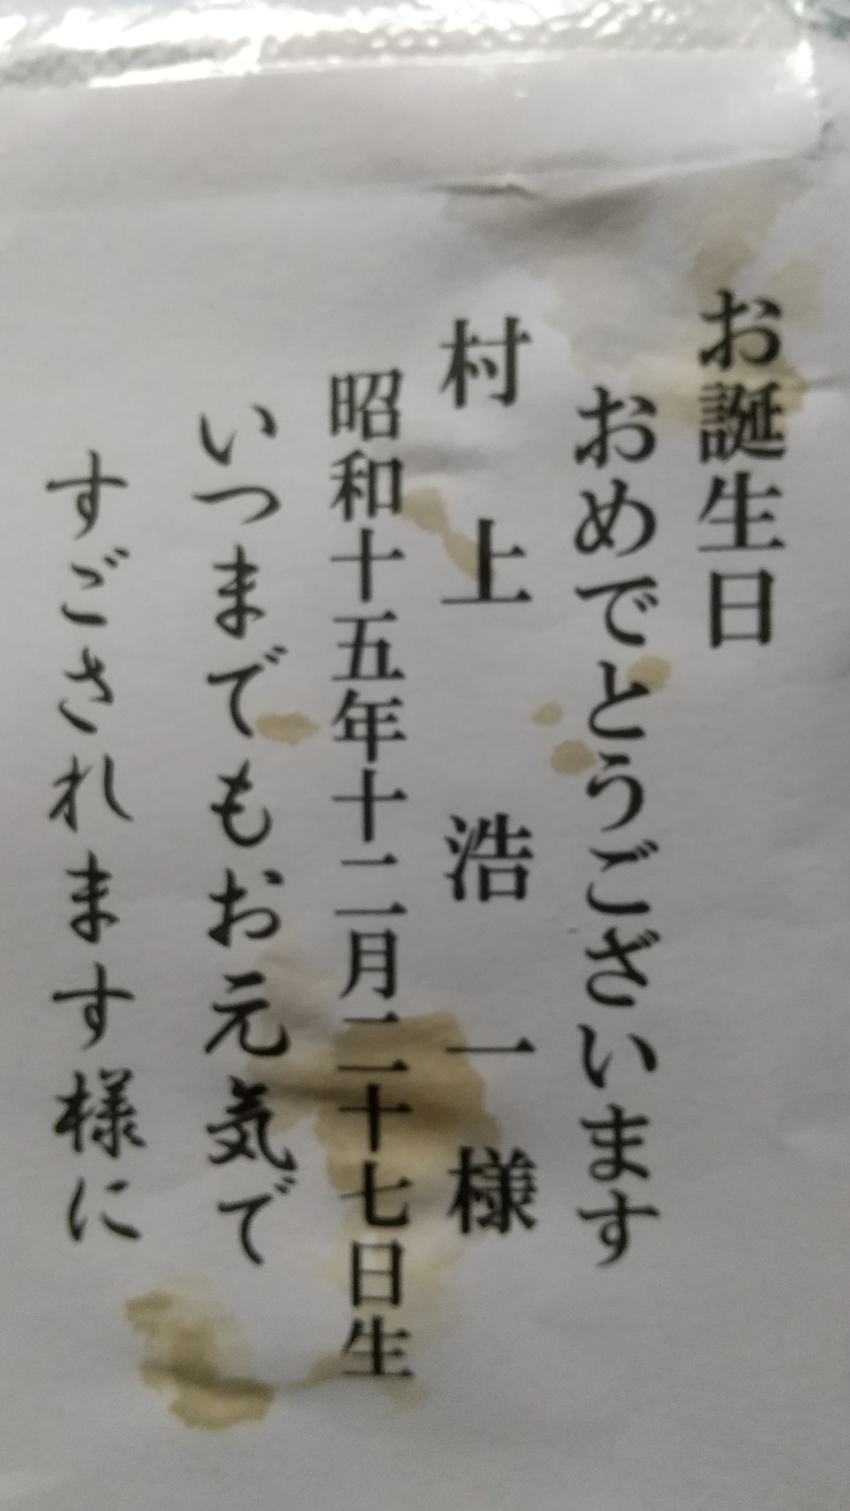 お誕生日
おめでとうございます
村上浩一様
昭和十五年十二月二十七日生
いつまでもお元気で
すごされます様に